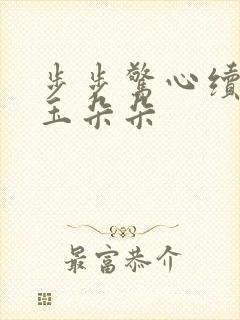 步步驚心續
玉朵朵
最富恭介